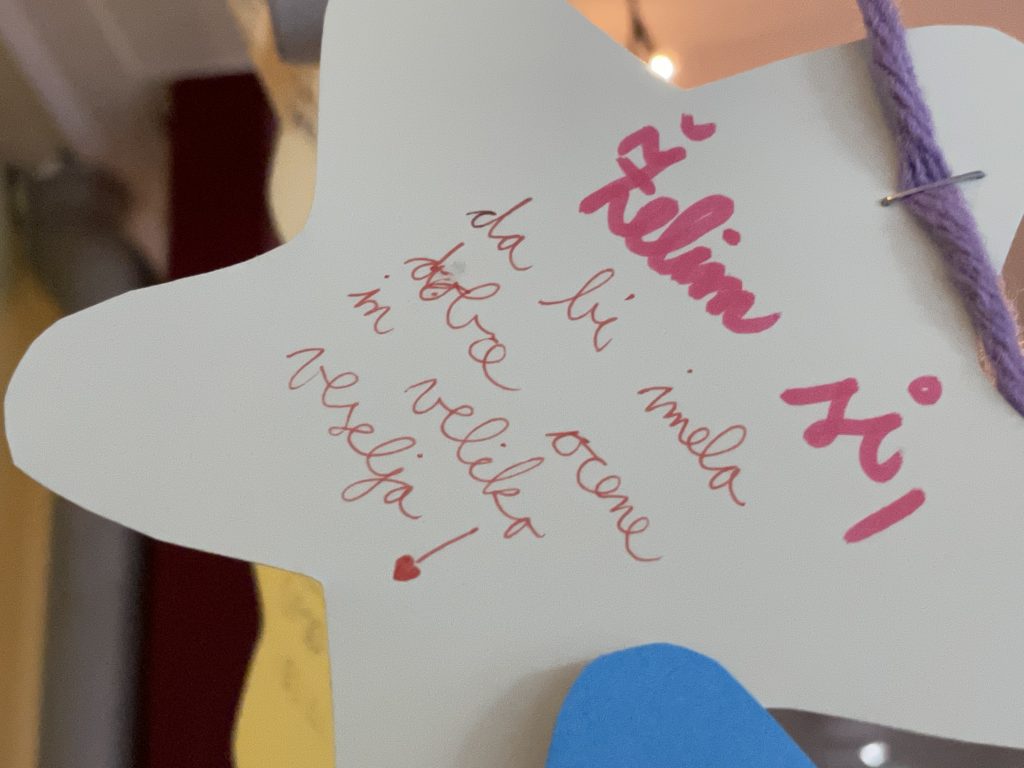 Želim si,
da bi imela
dobre ocene
in veliko
veselja!